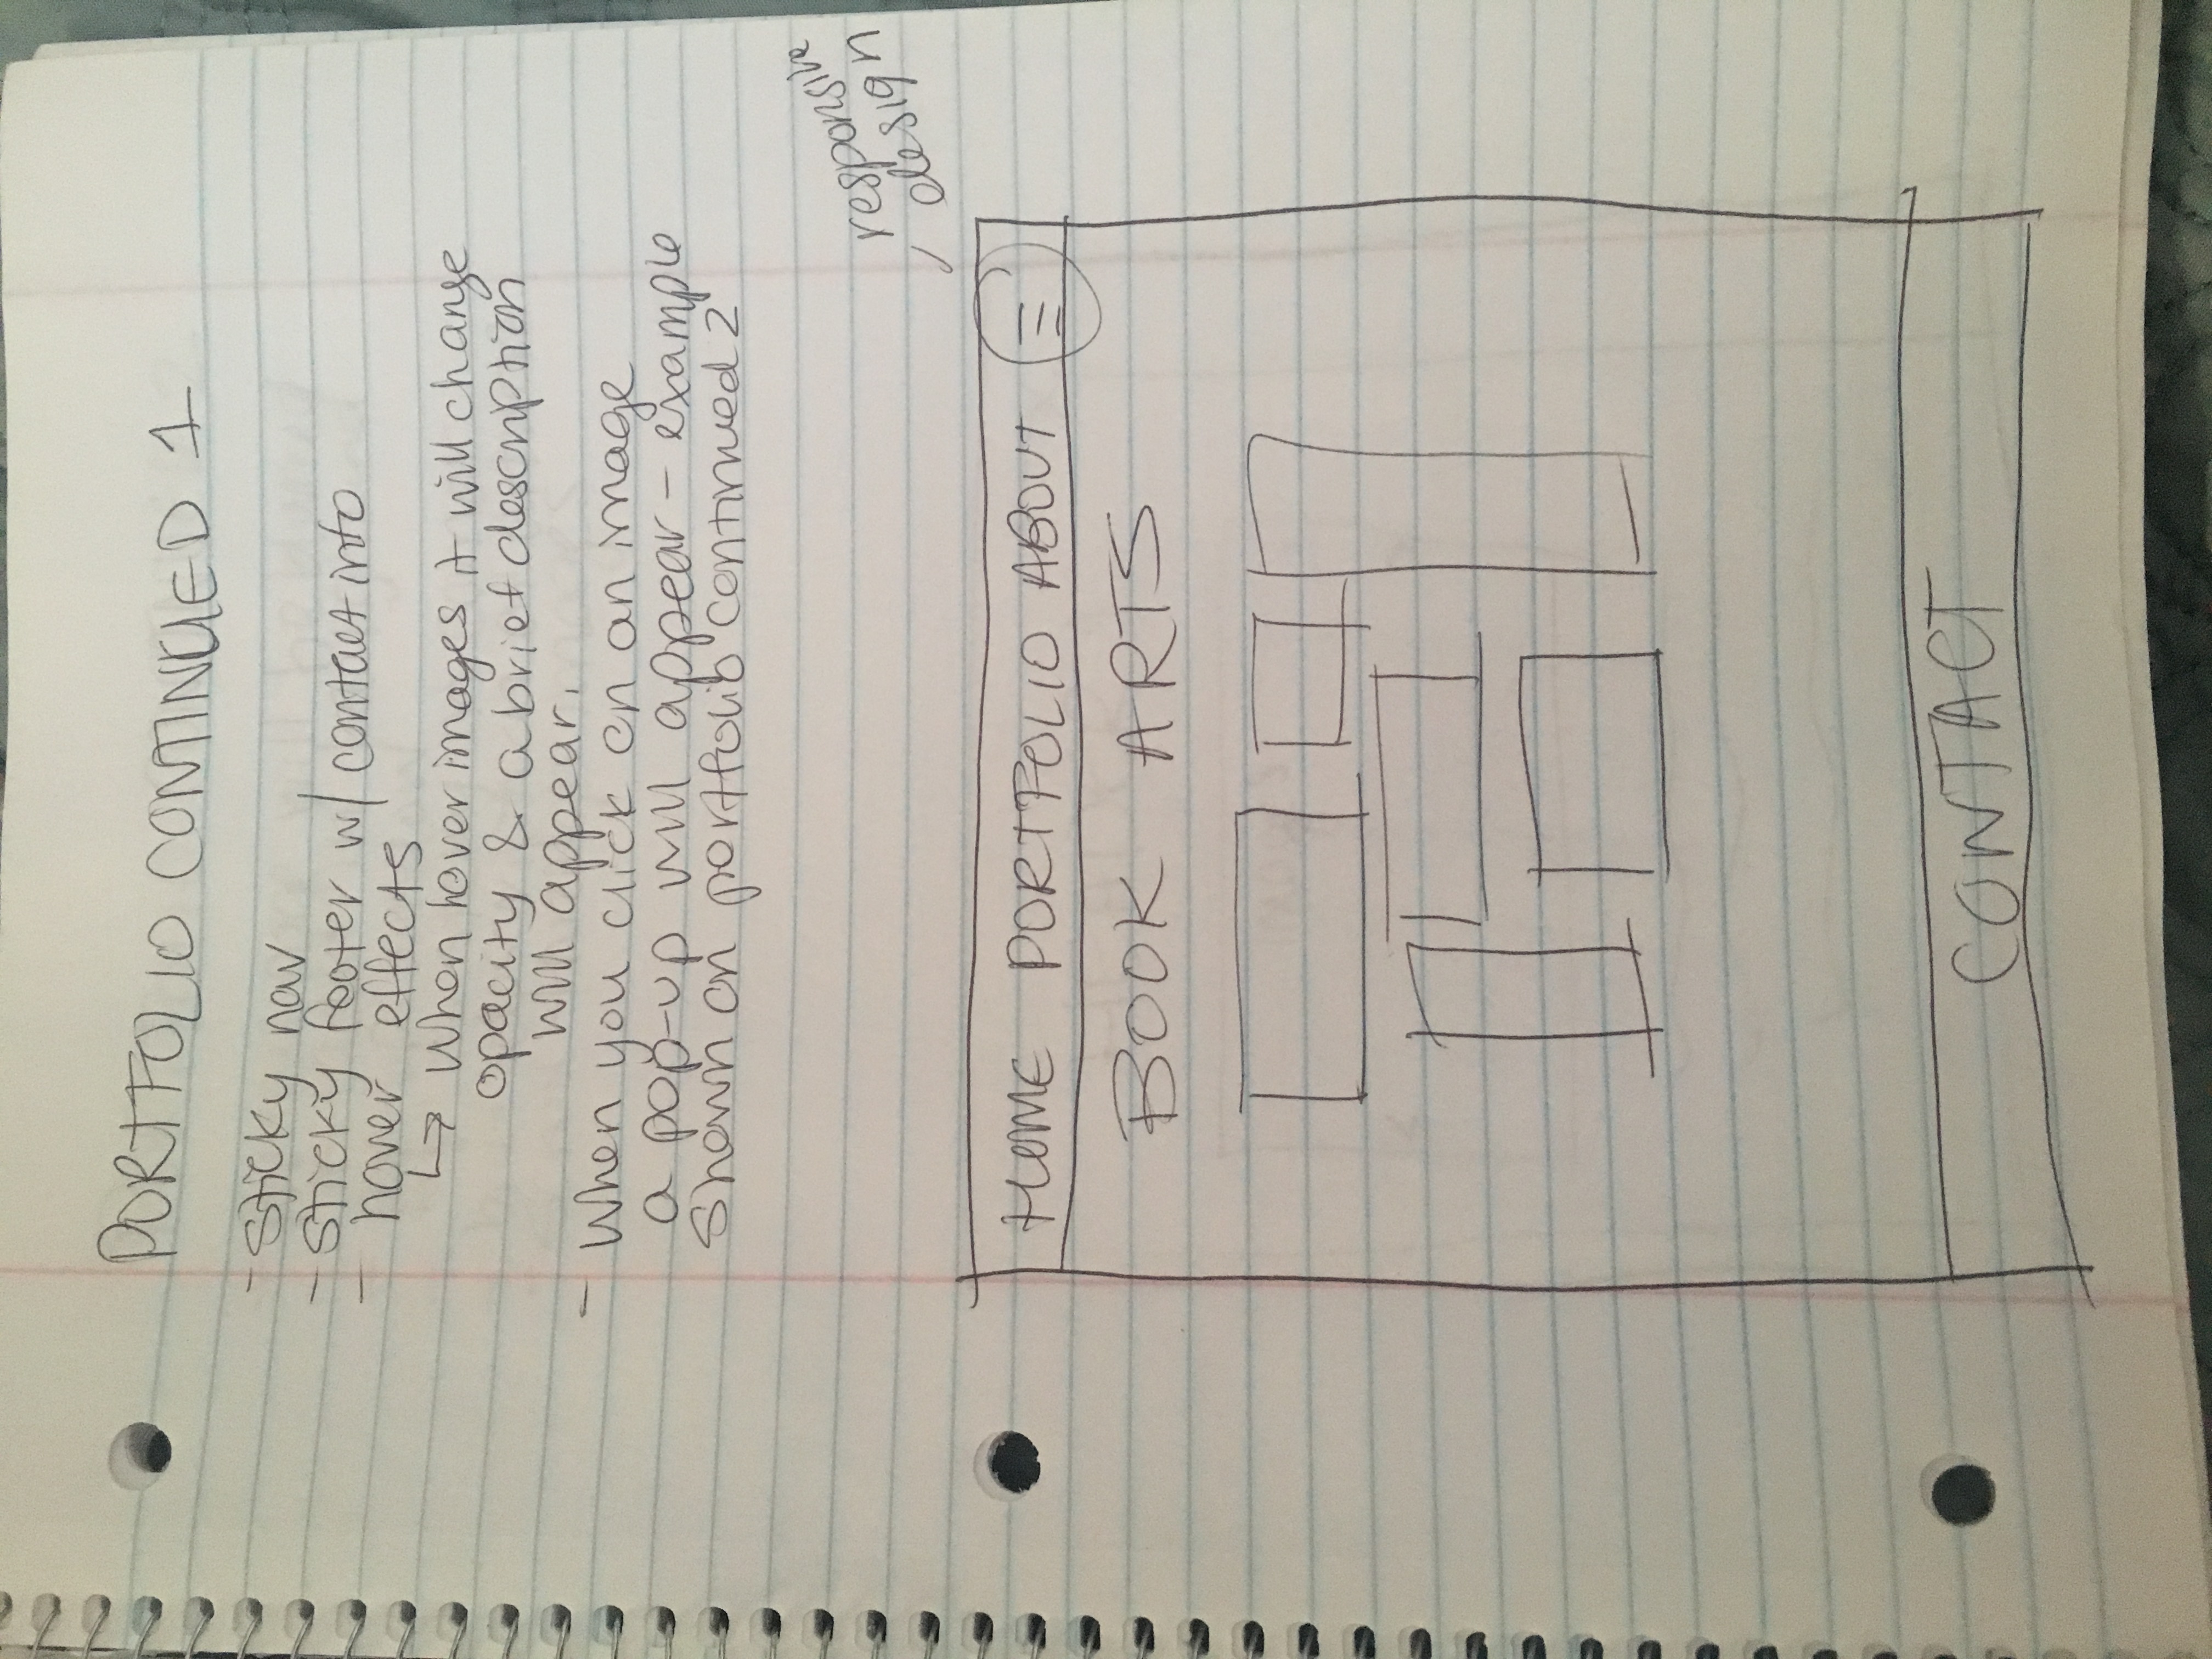 PORTFOLIO CONTINUED 1
- sticky nav
- sticky footer w/ contact info
- hover effects
↳ When hover images it will change
opacity & a brief description
will appear.
- When you click on an image
a pop-up will appear - example
shown on portfolio continued 2
responsive
design
HOME PORTFOLIO ABOUT
BOOK ARTS
CONTACT